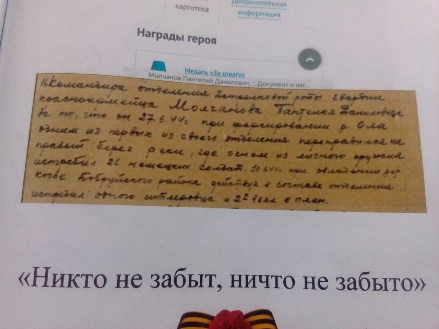 картотека
Дополнительная
информация
Награды героя
Медаль «За отвагу»
Молчанов Пантелей Данилович | Документ о наг...
Командира отделения стрелковой роты гвардии
красноармейца Молчанова Пантелея Даниловича
за то, что он 27.6.44г. при форсировании р. Ола
одним из первых из своего отделения переправился на
правый берег реки, где огнем из личного оружия
истребил 2х немецких солдат. при овладении
Бобруйского района действуя в составе отделения
истребил одного гитлеровца и 2х взял в плен.
«Никто не забыт, ничто не забыто»